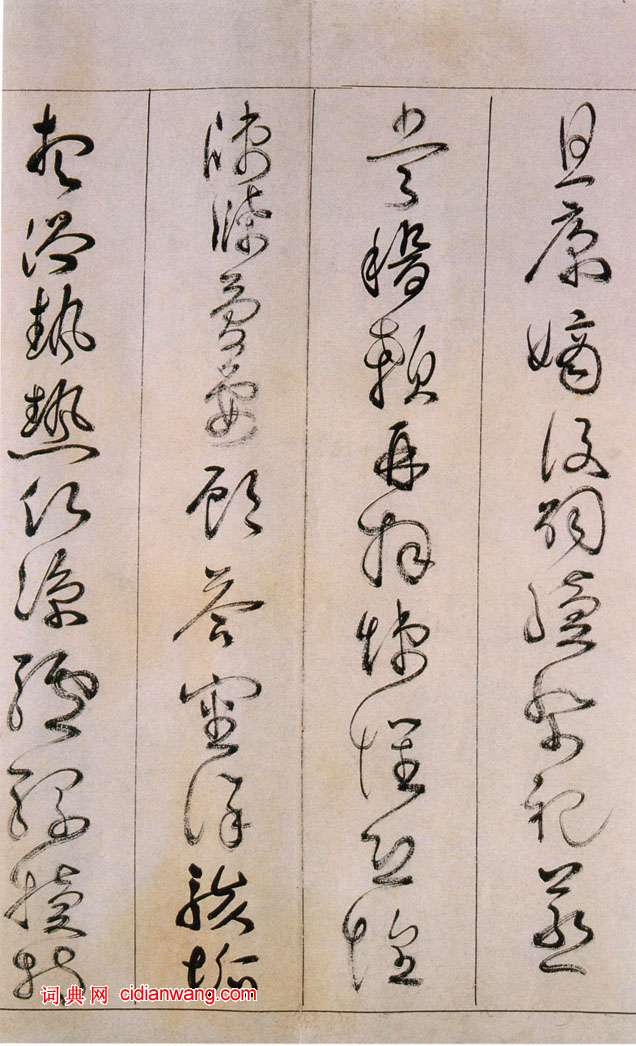 且康嫡后嗣續祭祀蒸
嘗稽顙再拜悚懼恐惶
牋牒簡要顧答審詳骸垢
想浴執熱願涼驢騾犢特
词典网 cidianwang.com